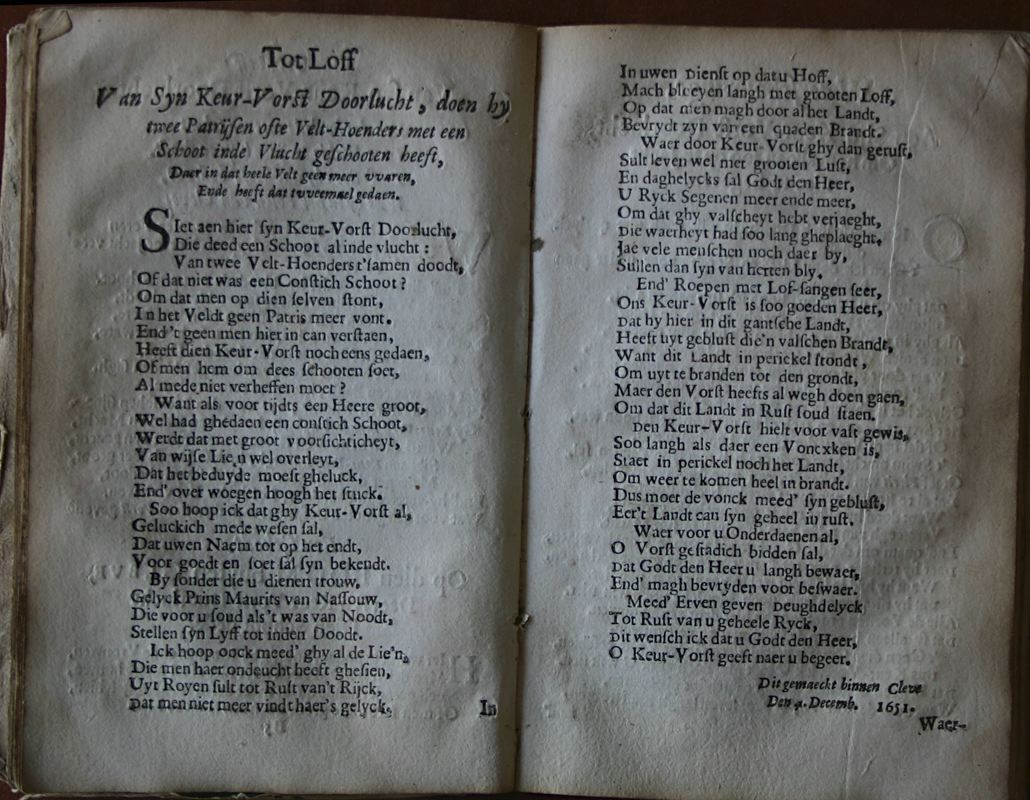 Tot Loff
Van Syn Keur-Vorst Doorlucht, doen hy
twee Patrijsen ofte Velt-Hoenders met een
Schoot inde Vlucht geschooten heeft,
Daer in dat heele Velt geen meer vvaren,
Ende heeft dat tvveemael gedaen.
SIet aen hier syn Keur-Vorst Doorlucht,
Die deed een Schoot al inde vlucht:
Van twee Velt-Hoenders t'samen doodt,
Of dat niet was een Constich Schoot?
Om dat men op dien selven stont,
In het Veldt geen Patris meer vont.
End't geen men hier in can verstaen,
Heeft dien Keur-Vorst noch eens gedaen,
Of men hem om dees schooten soet,
Al mede niet verheffen moet?
Want als voor tijdts een Heere groot,
Wel had ghedaen een constich Schoot,
Werdt dat met groot voorsichticheyt,
Van wijse Lie,n wel overleyt,
Dat het beduyde moest gheluck,
End' over woegen hoogh het stuck.
Soo hoop ick dat ghy Keur-Vorst al,
Geluckich mede wesen sal,
Dat uwen Naem tot op het endt,
Voor goedt en soet sal syn bekendt.
By sonder die u dienen trouw,
Gelyck Prins Maurits van Nassouw,
Die voor u soud als't was van Noodt,
Stellen syn Lyff tot inden Doodt.
Ick hoop oock meed' ghy al de Lie'n,
Die men haer ondeucht heeft ghesien,
Uyt Royen sult tot Rust van't Rijck,
Dat men niet meer vindt haer's gelyck,
In
In uwen Dienst op dat u Hoff,
Mach bloeyen langh met grooten Loff,
Op dat men magh door al het Landt,
Bevrydt zyn van een quaden Brandt.
Waer door Keur-Vorst ghy dan gerust,
Sult leven wel met grooten Lust,
En daghelycks sal Godt den Heer,
U Ryck Segenen meer ende meer,
Om dat ghy valscheyt hebt verjaeght,
Die waerheyt had soo lang gheplaeght,
Jae vele menschen noch daer by,
Sullen dan syn van herten bly.
End' Roepen met Lof-sangen seer,
Ons Keur-Vorst is soo goeden Heer,
Dat hy hier in dit gantsche Landt,
Heeft uyt geblust die'n valschen Brandt,
Want dit Landt in perickel stondt,
Om uyt te branden tot den grondt,
Maer den Vorst heefts al wegh doen gaen,
Om dat dit Landt in Rust soud staen.
Den Keur-Vorst hielt voor vast gewis,
Soo langh als daer een Voncxken is,
Staet in perickel noch het Landt,
Om weer te komen heel in brandt.
Dus moet de vonck meed' syn geblust,
Eer't Landt can syn geheel in rust.
Waer voor u Onderdaenen al,
O Vorst gestadich bidden sal,
Dat Godt den Heer u langh bewaer,
End' magh bevryden voor beswaer.
Meed' Erven geven Deughdelyck
Tot Rust van u geheele Ryck,
Dit wensch ick dat u Godt den Heer,
O Keur-Vorst geeft naer u begeer.
Dit gemaeckt binnen Cleve
Den 4. Decemb. 1651.
Waer-